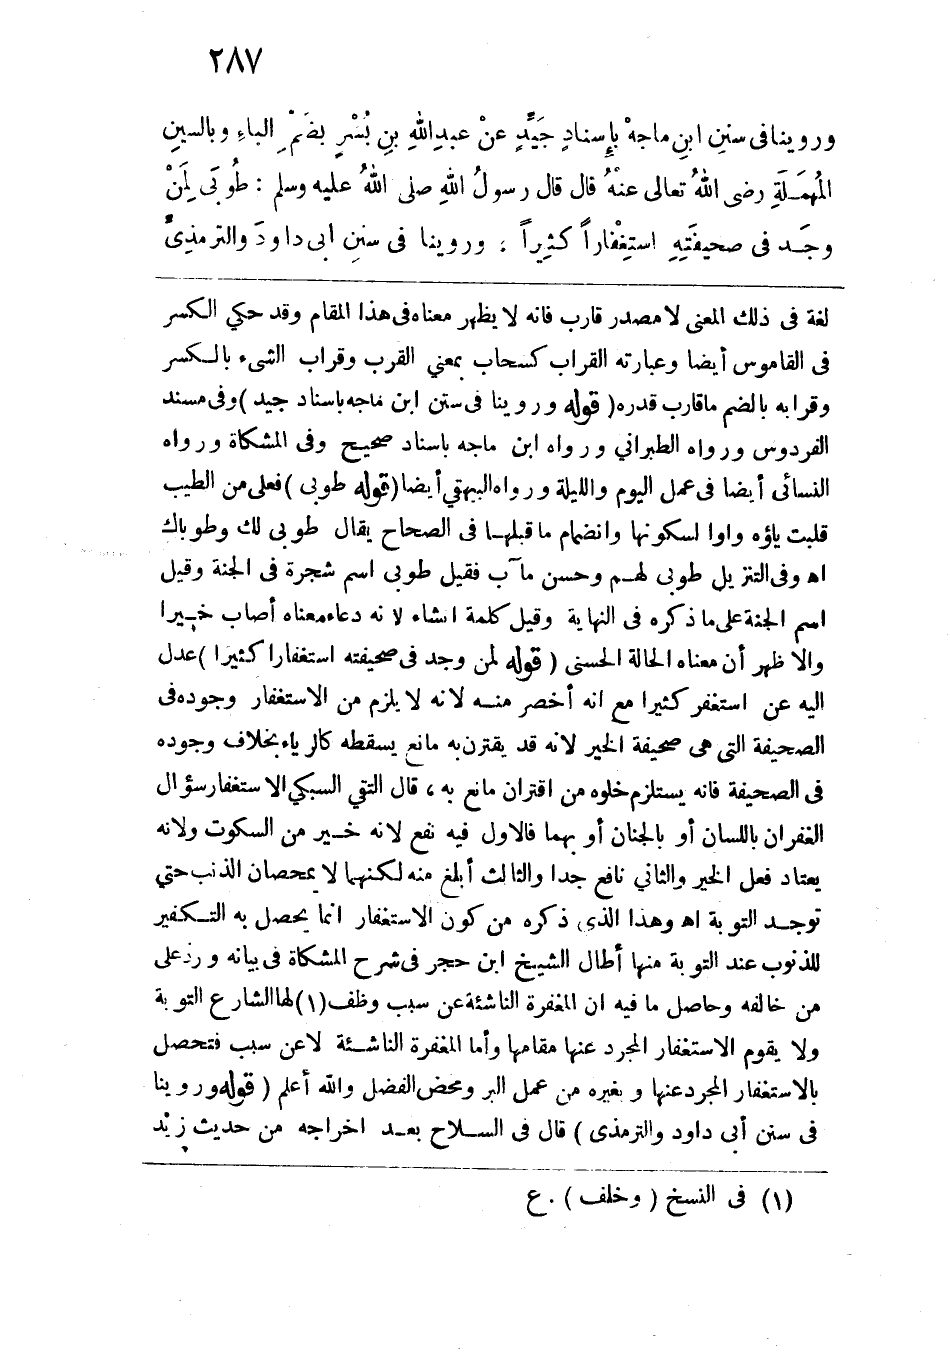 ٢٨٧
وروينا فى سنن ابن ماجهْ بإسنادٍ جَيِّدٍ عنْ عبدِاللهِ بنِ بُسْرٍ بضَمِّ الباءِ وبالسينِ
المُهمَلَةِ رضى اللهُ تعالى عنْهُ قال قال رسولُ اللهِ صلى اللهُ عليه وسلم : طُوبَى لِمَنْ
وجَد فى صحيفَتِهِ استِغْفاراً كثِيراً ؛ وروينا فى سننِ أبى داودَ والترمذِىِّ
لغة فى ذلك المعنى لا مصدر قارب فانه لا يظهر معناه فى هذا المقام وقد حكي الكسر
فى القاموس أيضا وعبارته القراب كسحاب بمعني القرب وقراب الشىء بالكسر
وقرابه بالضم ماقارب قدره ( قوله وروينا فى سنن ابن ماجه باسناد جيد ) وفى مسند
الفردوس ورواه الطبراني ورواه ابن ماجه باسناد صحيح وفى المشكاة ورواه
النسائى أيضا فى عمل اليوم والليلة ورواه البيهقي أيضا ( قوله طوبى ) فعلى من الطيب
قلبت ياؤه واوا لسكونها وانضمام ما قبلها فى الصحاح يقال طوبى لك وطوباك
اه وفى التنزيل طوبى لهم وحسن مآب فقيل طوبى اسم شجرة فى الجنة وقيل
اسم الجنة على ما ذكره فى النهاية وقيل كلمة انشاء لانه دعاء معناه أصاب خيرا
والاظهر أن معناه الحالة الحسنى ( قوله لمن وجد فى صحيفته استغفارا كثيرا ) عدل
اليه عن استغفر كثيرا مع انه أخصر منه لانه لا يلزم من الاستغفار وجوده فى
الصحيفة التى هى صحيفة الخير لانه قد يقترن به مانع يسقطه كالرياء بخلاف وجوده
فى الصحيفة فانه يستلزم خلوه من اقتران مانع به ، قال التقي السبكي الاستغفار سؤال
الغفران باللسان أو بالجنان أو بهما فالاول فيه نفع لانه خير من السكوت ولانه
يعتاد فعل الخير والثاني نافع جدا والثالث أبلغ منه لكنهما لا يمحصان الذنب حتي
توجد التوبة اه وهذا الذى ذكره من كون الاستغفار انما يحصل به التكفير
للذنوب عند التوبة منها أطال الشيخ ابن حجر فى شرح المشكاة فى بيانه ورد على
من خالفه وحاصل ما فيه ان المغفرة الناشئة عن سبب وظف (١) لها الشارع التوبة
ولا يقوم الاستغفار المجرد عنها مقامها وأما المغفرة الناشئة لا عن سبب فتحصل
بالاستغفار المجرد عنها وبغيره من عمل البر ومحض الفضل والله أعلم ( قوله وروينا
فى سنن أبى داود والترمذى ) قال فى السلاح بعد اخراجه من حديث زيد
(١) فى النسخ ( وخلف ) . ع